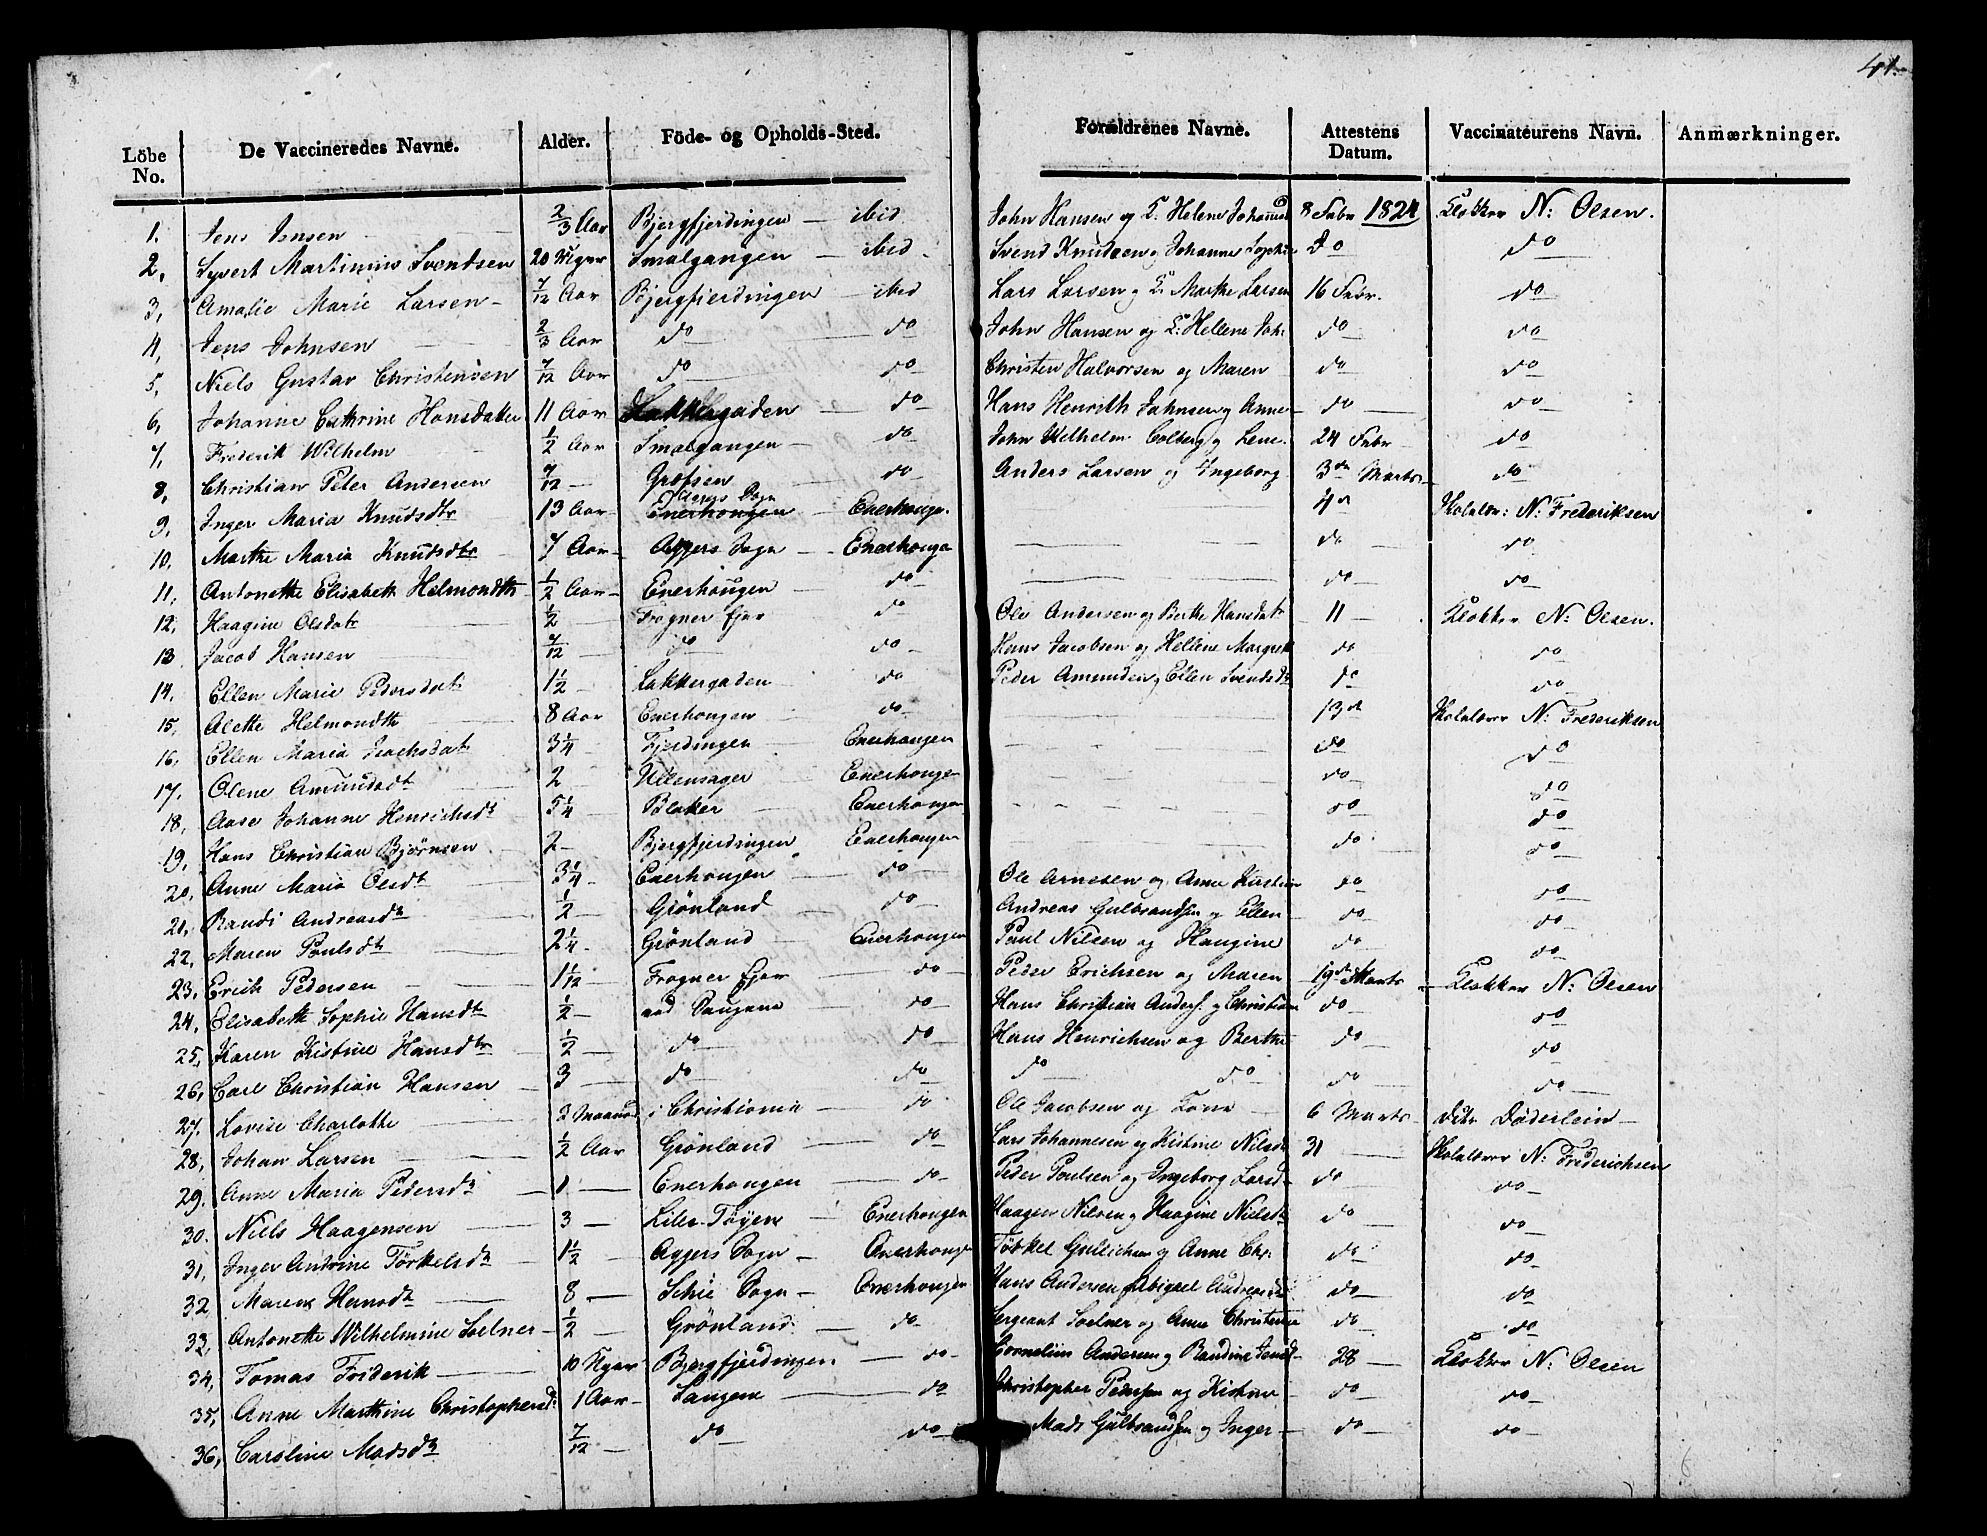 41.
Löbe No. De Vaccineredes Navne. Alder. Föde- og Opholds-Sted. Forældrenes Navne. Attestens Datum. Vaccinateurens Navn. Anmærkninger.
1. Jens Jensen 2/3 Aar Bjergfjerdingen — ibid John Hansen og Helene 8 Febr 1824 Klokker N: Olsen.
2, Syvert Martinius Svendsen 20 Uger Smalgangen — ibid Svend Knudsen og Johanne Sophie do do
3, Amalie Marie Larsen 7/12 Aar Bjergfjerdingen — ibid Lars Larsen og Marthe Larsen 16 Febr. do
4, Jens Johnsen 2/3 Aar do do John Hansen og Hellene Joh: do do
5, Niels Gustav Christensen 7/12 Aar do do Christen Halvorsen og Maren do do
6, Johanne Cathrine Hansdatter 11 Aar Lakkegaden — do Hans Henrich Johnsen og Anne do do
7, Frederik Wilhelm 1/2 Aar Smalgangen — do John Wilhelm Colberg og Lene. 24 Febr do
8, Christian Peter Andersen 7/12 — Grefsen do Anders Larsen og Ingeborg 3die Marts do
9, Inger Maria Knudsdtr 13 Aar Aggers Sogn — Enerhougen 4de Skolelær: N: Frederiksen
10, Marthe Maria Knudsdtr 7 Aar Aggers Sogn — Enerhougen do do
11, Antonette Elisabeth Helmondth 1/2 Aar Enerhougen do do do
12, Haagine Olsdatr 1/2 Frogner Ejer do Ole Andersen og Berthe Hansdatr 11 — Klokker N: Olsen.
13 Jacob Hansen 7/12 do do Hans Jacobsen og Hellene Margreth do do
14, Ellen Marie Pedersdatr 1 1/2 Lakkergaden do Peder Amundsen, Ellen Svendsdtr do do
15, Alette Helmondth 8 Aar Enerhougen do 13de Skolelærer N: Frederiksen
16, Ellen Maria Isachsdatr 3 1/4 Fjerdingen Enerhougen do do
17, Olene Amundsdtr 2 Ullensager Enerhougen do do
18, Aase Johanne Henrichsdtr 5 1/4 Blaker Enerhougen do do
19, Hans Christian Bjørnsen 2 Bjergfjerdingen Enerhougen do do
20, Anne Maria Olsdtr 3 1/4 Enerhougen do Ole Arnesen og Anne Kirstine do do
21, Randi Andreasdtr 1/2 — Grönland do Andreas Gulbrandsen og Ellen do do
22, Maren Poulsdtr 2 1/4 Grönland Enerhougen Paul Nilsen og Haugine do do
23, Erich Pedersen 1 1/12 Frogner Ejer do Peder Erichsen og Maren 19de Marts Klokker N: Olsen
24, Elisabeth Sophie Hansdtr 1/2 — ved Saugene do Hans Christian Anders. og Christine do do
25, Karen Kistine Hansdtr 1/2 — do do Hans Henrichsen og Berthe do do
26, Carl Christian Hansen 3 — do do do do do do
27. Lovise Charlotte 2 Maaned i Christiania do Ole Jacobsen og Lene 6 Marts Döderlein
28, Johan Larsen 1/2 Aar Grönland do Lars Johannesen og Kistine Nilsdtr 31 Skolelærer N: Frederichsen
29. Anne Maria Pedersdtr 1 — Enerhougen do Peder Poulsen og Ingeborg Larsd do do
30. Niels Haagensen 3 — Lille-Töyen Enerhougen Haagen Nilsen og Haagine Nielsdtr do do
31, Inger Andrine Törkelsdtr 1 1/2 — Aggers Sogn Enerhougen Törkel Gullichsen og Anne Chr. do do
32 Maren Hansdtr 8 — Schie Sogn Enerhougen Hans Andersen Abigael Andreasdtr do do
33, Antonette Wilhelmine Soelner 1/2 — Grönland do Sergeant Soelner og Anne Christense do do
34, Tomas Friderik 10 Uger Bjergfjerdingen do Cornelius Andersen og Randine Jensd 28 — Klokker N: Olsen
35, Anne Marthine Christophersdr 1 Aar Saugene do Christopher Pedersen og Kistine do do
36, Caroline Madsdtr 7/12 — do do Mads Gulbrandsen og Inger do do